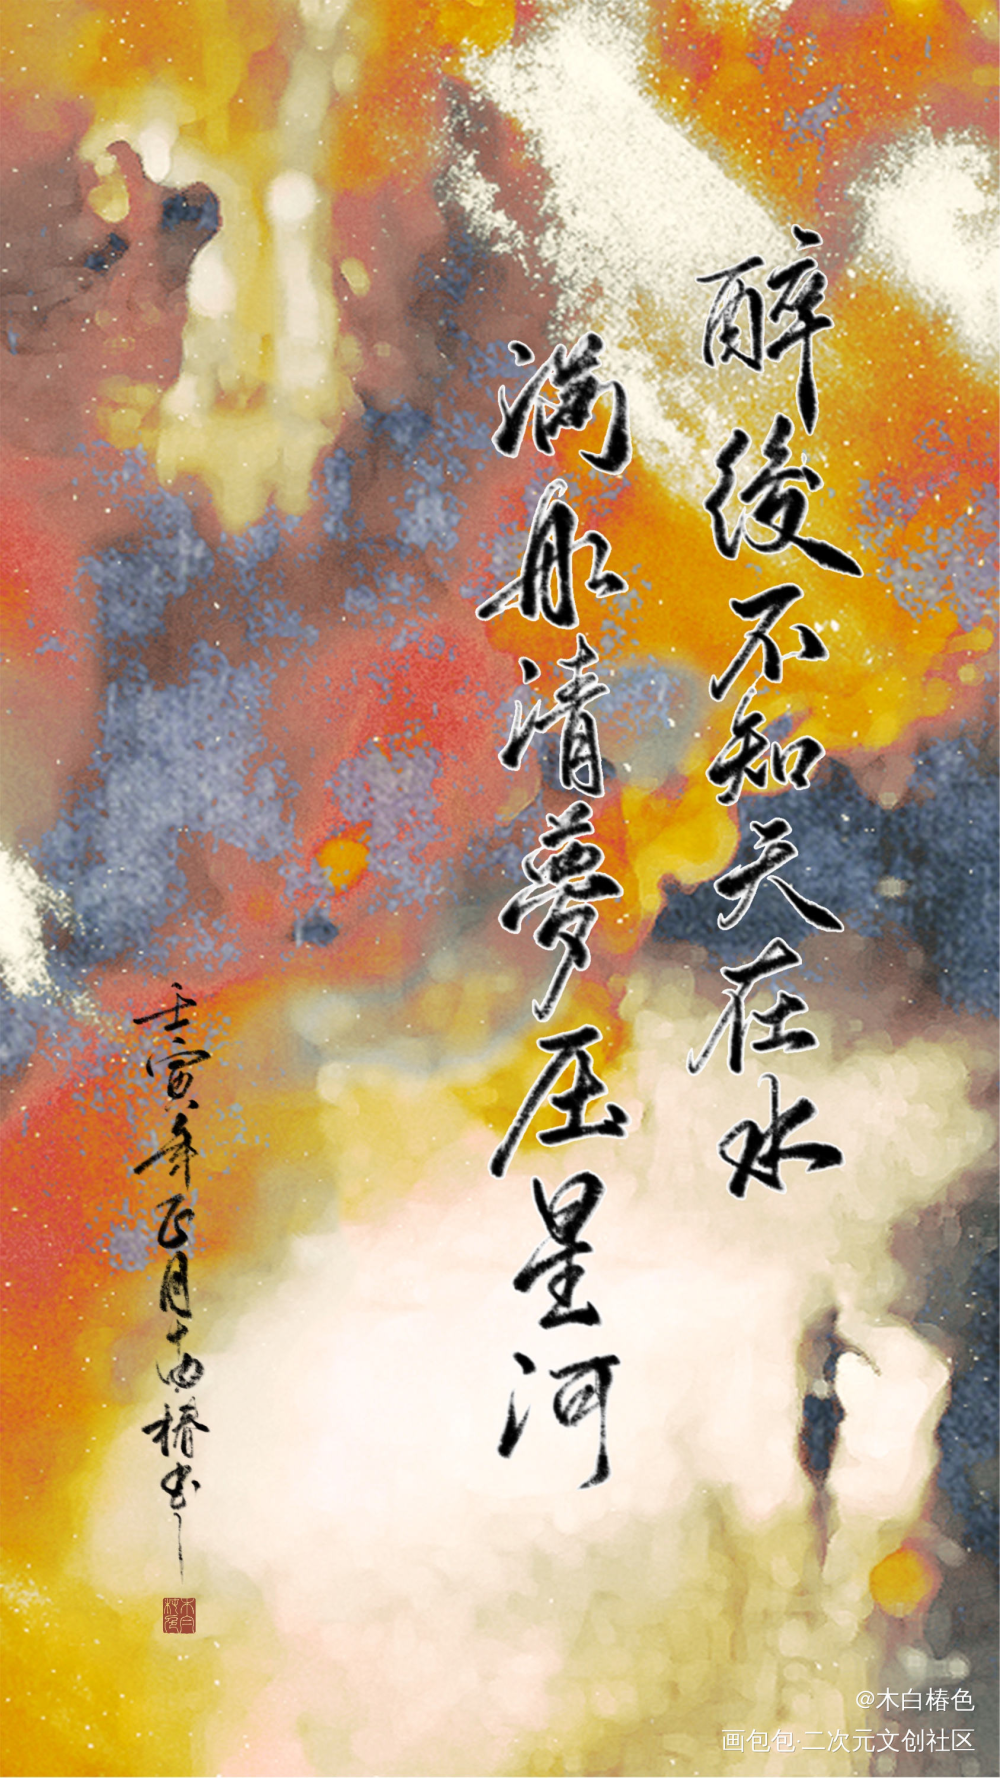 醉後不知天在水
满船清夢压星河
壬寅年正月十四椿书
木白椿色
@木白椿色
画包包·二次元文创社区